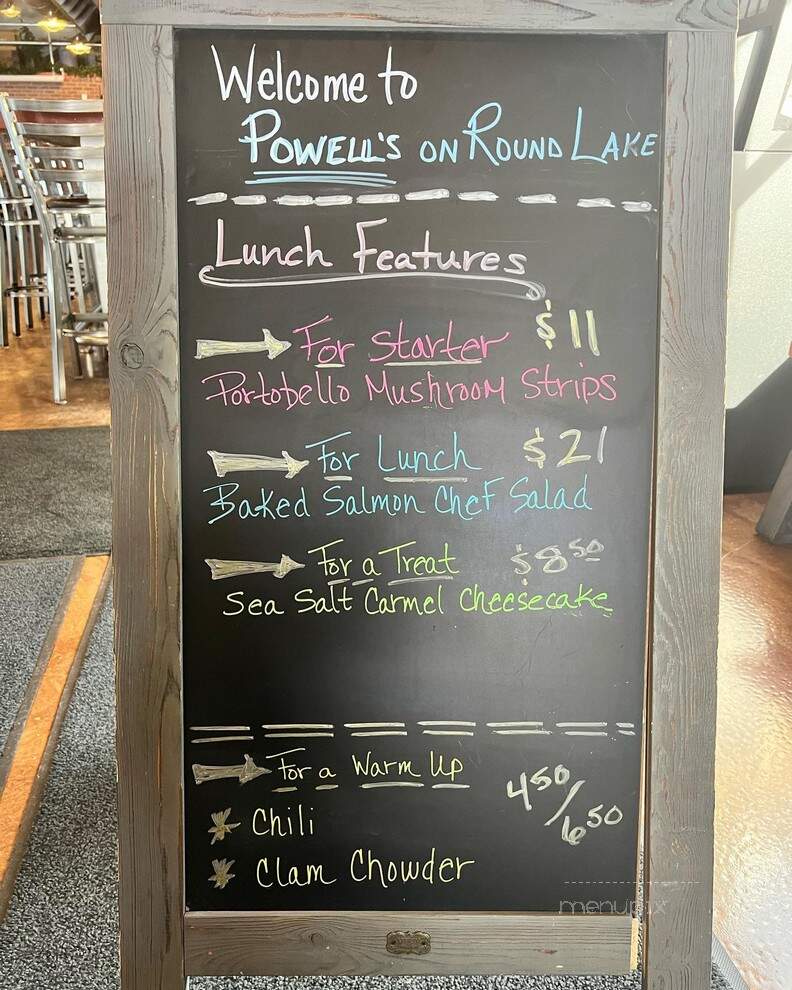 Welcome to
POWELL'S ON ROUND LAKE
Lunch Features
For Starter $11
Portobello Mushroom Strips
For Lunch $21
Baked Salmon Chef Salad
For a Treat $8 50
Sea Salt Carmel Cheesecake
For a Warm Up 4 50/6 50
Chili
Clam Chowder
menupix